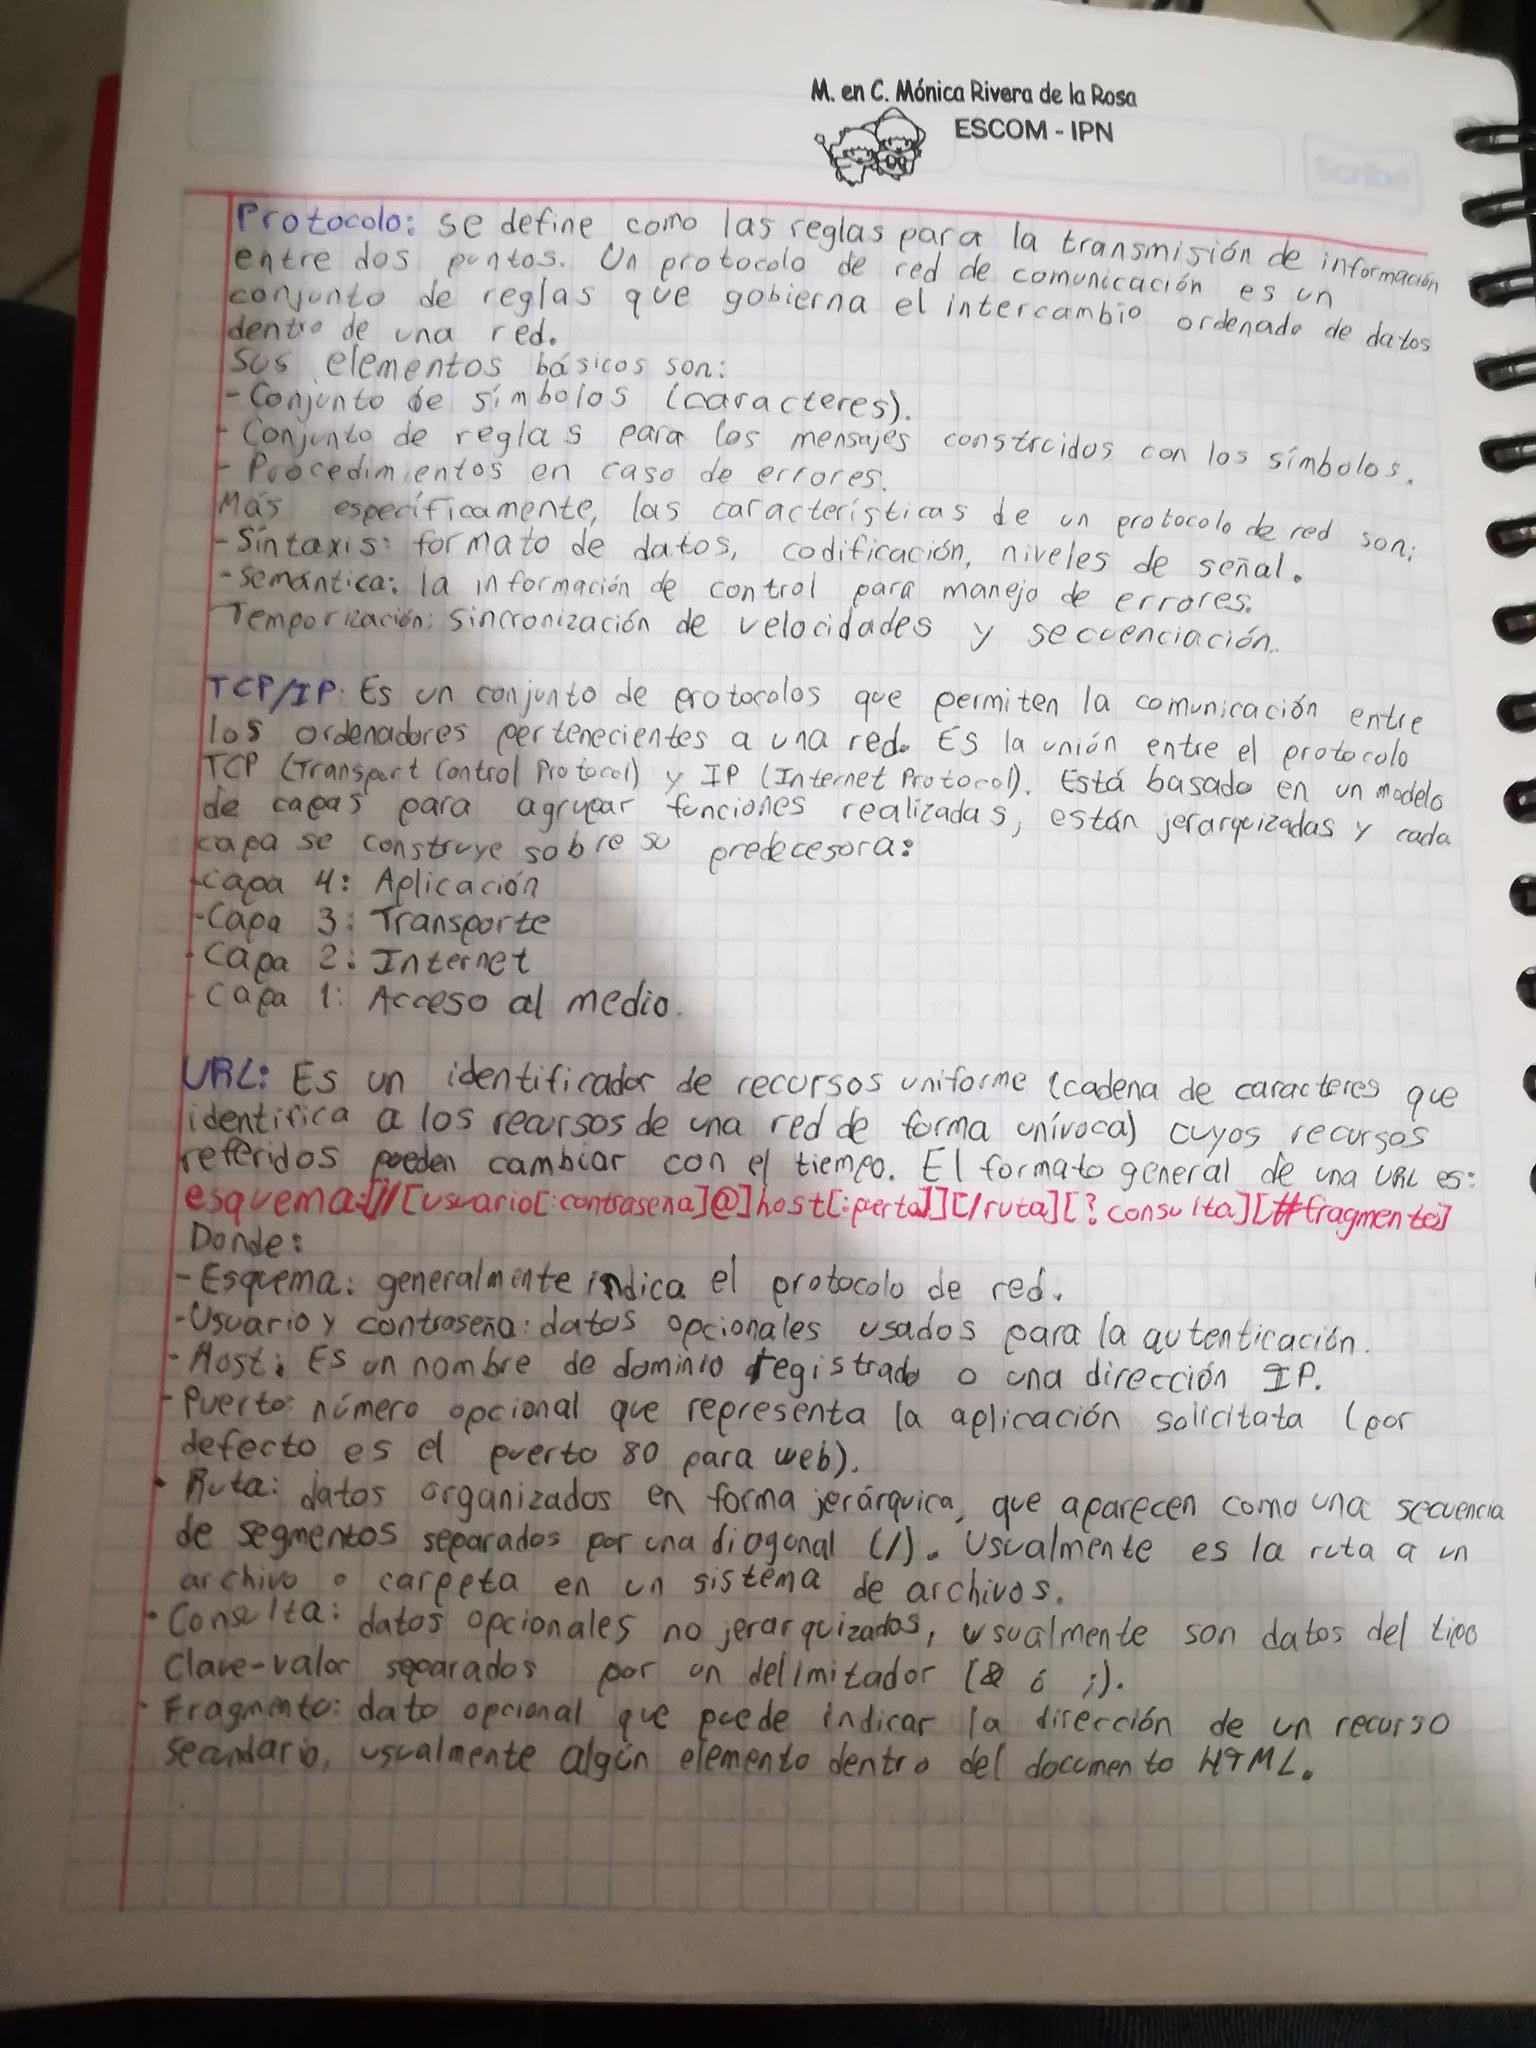 M. en C. Mónica Rivera de la Rosa
ESCOM - IPN
Scribe
Protocolo: se define como las reglas para la transmisión de información
entre dos puntos. Un protocolo de red de comunicación es un
conjunto de reglas que gobierna el intercambio ordenado de datos
dentro de una red.
Sus elementos básicos son:
- Conjunto de símbolos (caracteres).
- Conjunto de reglas para los mensajes construidos con los símbolos.
- Procedimientos en caso de errores.
Más específicamente, las características de un protocolo de red son:
- Sintaxis: formato de datos, codificación, niveles de señal.
- semántica: la información de control para manejo de errores.
Temporización: sincronización de velocidades y secuenciación.
TCP/IP: Es un conjunto de protocolos que permiten la comunicación entre
los ordenadores pertenecientes a una red. Es la unión entre el protocolo
TCP (Transport Control Protocol) y IP (Internet Protocol). Está basado en un modelo
de capas para agrupar funciones realizadas, están jerarquizadas y cada
capa se construye sobre su predecesora:
- Capa 4: Aplicación
- Capa 3: Transporte
- Capa 2: Internet
- Capa 1: Acceso al medio.
URL: Es un identificador de recursos uniforme (cadena de caracteres que
identifica a los recursos de una red de forma unívoca) cuyos recursos
referidos pueden cambiar con el tiempo. El formato general de una URL es:
esquema:[//[usuario[:contraseña]@]host[:puerto]][/ruta][?consulta][#fragmento]
Donde:
- Esquema: generalmente indica el protocolo de red.
- Usuario y contraseña: datos opcionales usados para la autenticación.
- Host: Es un nombre de dominio registrado o una dirección IP.
- Puerto: número opcional que representa la aplicación solicitata (por
defecto es el puerto 80 para web).
• Ruta: datos organizados en forma jerárquica, que aparecen como una secuencia
de segmentos separados por una diagonal (/). Usualmente es la ruta a un
archivo o carpeta en un sistema de archivos.
• Consulta: datos opcionales no jerarquizados, usualmente son datos del tipo
Clave-valor separados por un delimitador (& ó ;).
• Fragmento: dato opcional que puede indicar la dirección de un recurso
secundario, usualmente algún elemento dentro del documento HTML.